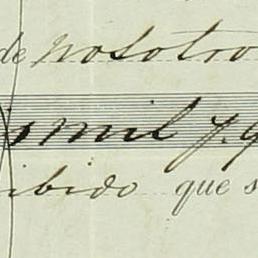 de nosotro
mil
ibido que s